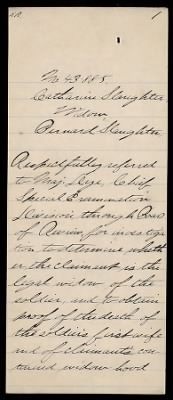 1
No 43.885.
Catharine Slaughter
Widow
Bernard Slaughter
Respectfully referred
to Maj. Chief,
Special Examination
Division through Board
of Review, for investiga-
tion to determine wheth-
er the claimant is the
legal widow of the
soldier, and to obtain
proof of the death of
the soldier's first wife
and of claimants con-
tinued widow hood